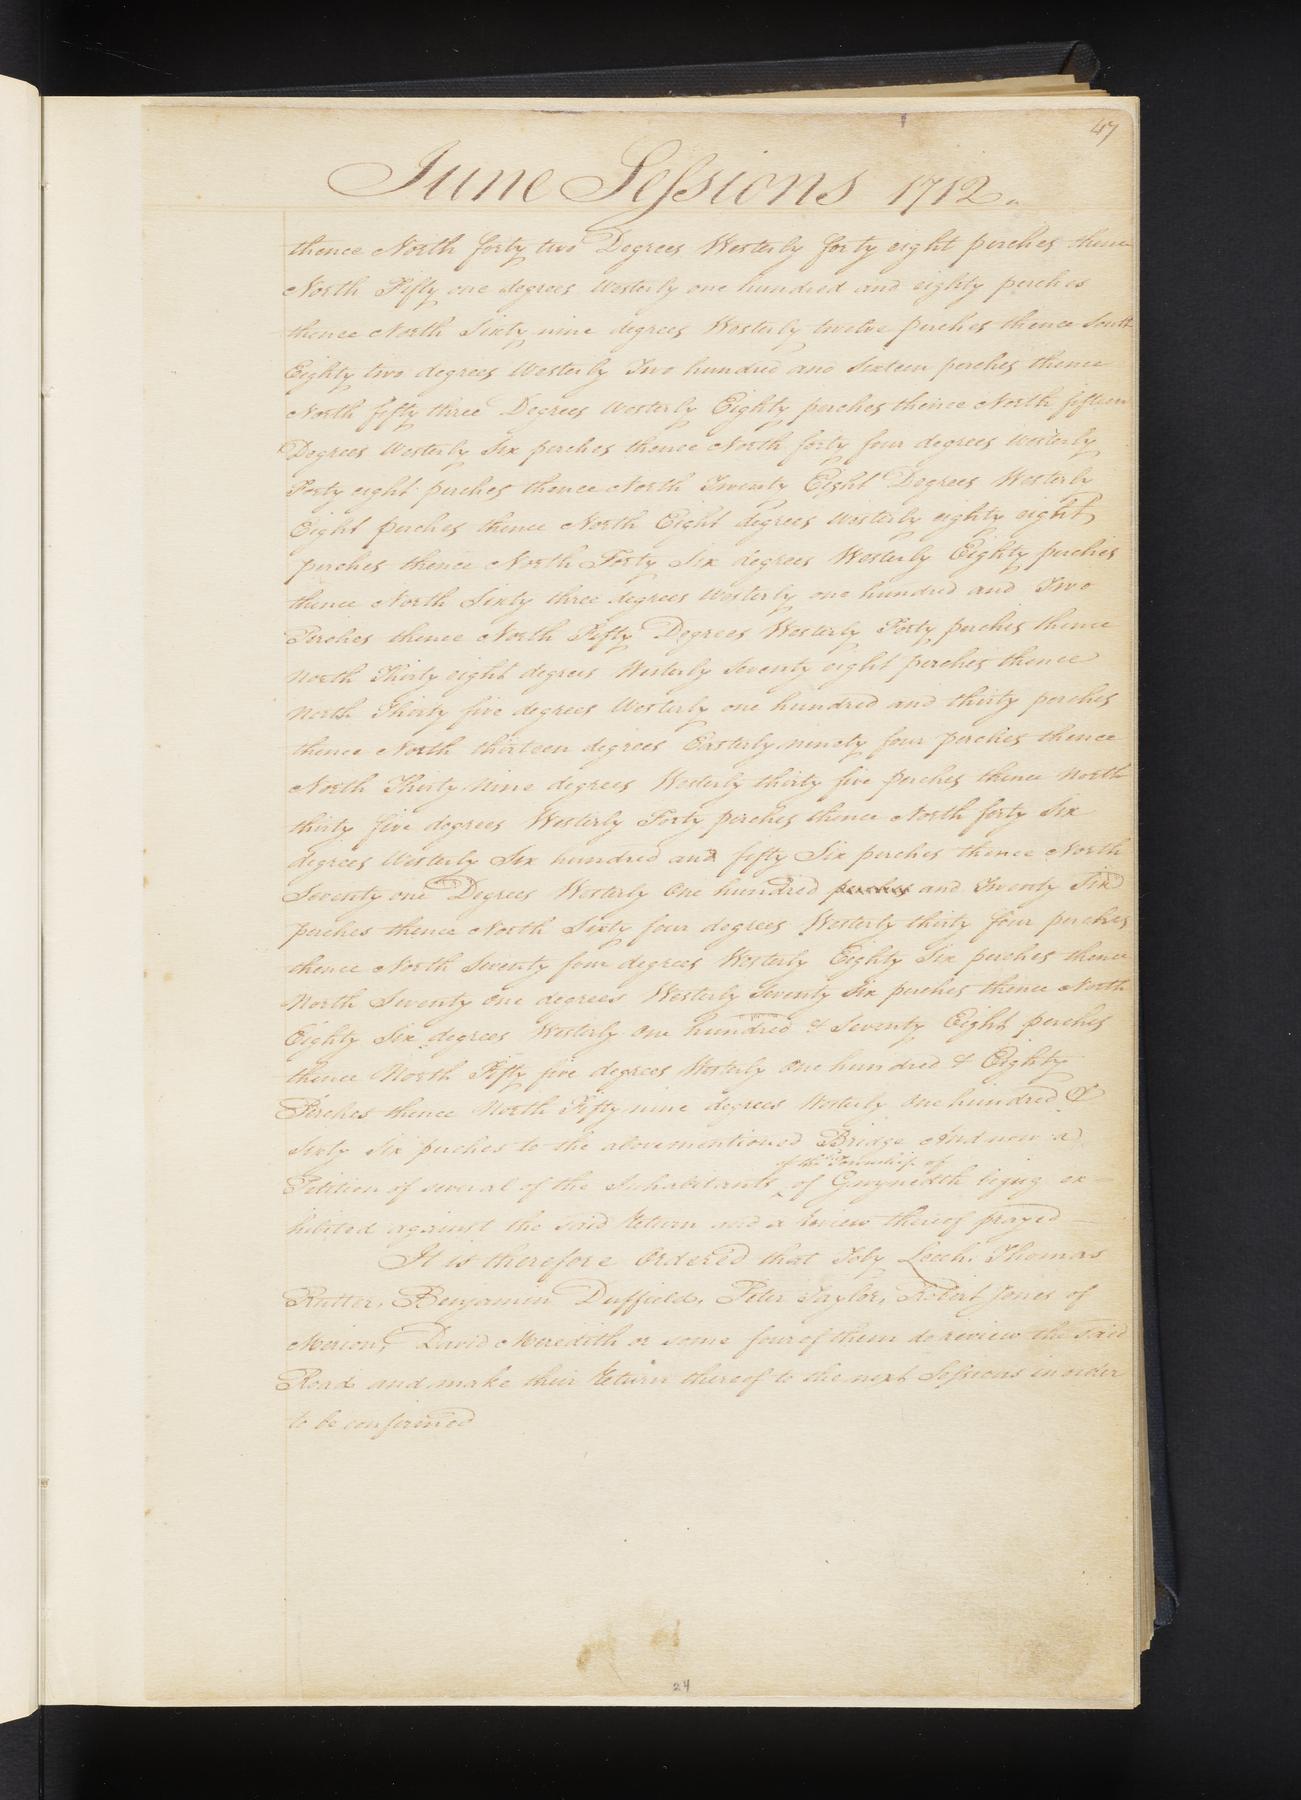 47
June Sessions 1712.
thence North forty two Degrees Westerly forty eight perches thence
North Fifty one degrees Westerly one hundred and eighty perches
thence North Sixty nine degrees Westerly twelve perches thence South
Eighty two degrees Westerly Two hundred and Sixteen perches thence
North fifty three Degrees Westerly Eighty perches thence North fifteen
Degrees Westerly Six perches thence North forty four degrees westerly
Forty eight perches thence North Twenty Eight Degrees Westerly
Eight perches thence North Eight degrees westerly eighty eight
perches thence North Forty Six degrees Westerly Eighty perches
thence North Sixty three degrees Westerly one hundred and Two
Perches thence North Fifty Degrees Westerly Forty perches thence
North Thirty eight degrees Westerly Seventy eight perches thence
North Thirty five degrees Westerly one hundred and thirty perches
thence North thirteen degrees Easterly ninety four perches thence
North Thirty Nine degrees Westerly thirty five perches thence North
thirty five degrees Westerly Forty perches thence North forty Six
degrees Westerly Six hundred and fifty Six perches thence North
Seventy one Degrees Westerly One hundred perches and Twenty Six
perches thence North Sixty four degrees Westerly thirty four perches
thence North Seventy four degrees Westerly Eighty Six perches thence
North Seventy one degrees Westerly Seventy Six perches thence North
Eighty Six degrees Westerly One hundred & Seventy Eight perches
thence North Fifty five degrees Westerly One hundred & Eighty
Perches thence North Fifty nine degrees Westerly One hundred &
Sixty Six perches to the abovementioned Bridge And now a
of the Township of
Petition of several of the Inhabitants of Gwynedth ex-
hibited against the said Return and a review thereof prayed
It is therefore Ordered that Toby Leech, Thomas
Rutter, Benjamin Duffield, Peter Taylor, Robert Jones of
Merion, David Meredith or some four of them do review the said
Road and make their Return thereof to the next Sessions in order
to be confirmed
24